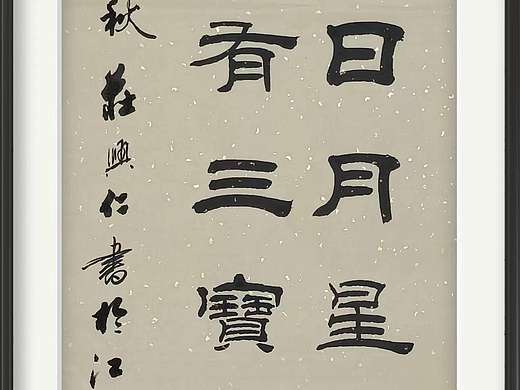 日月星
有三寶
秋莊興仁書於江